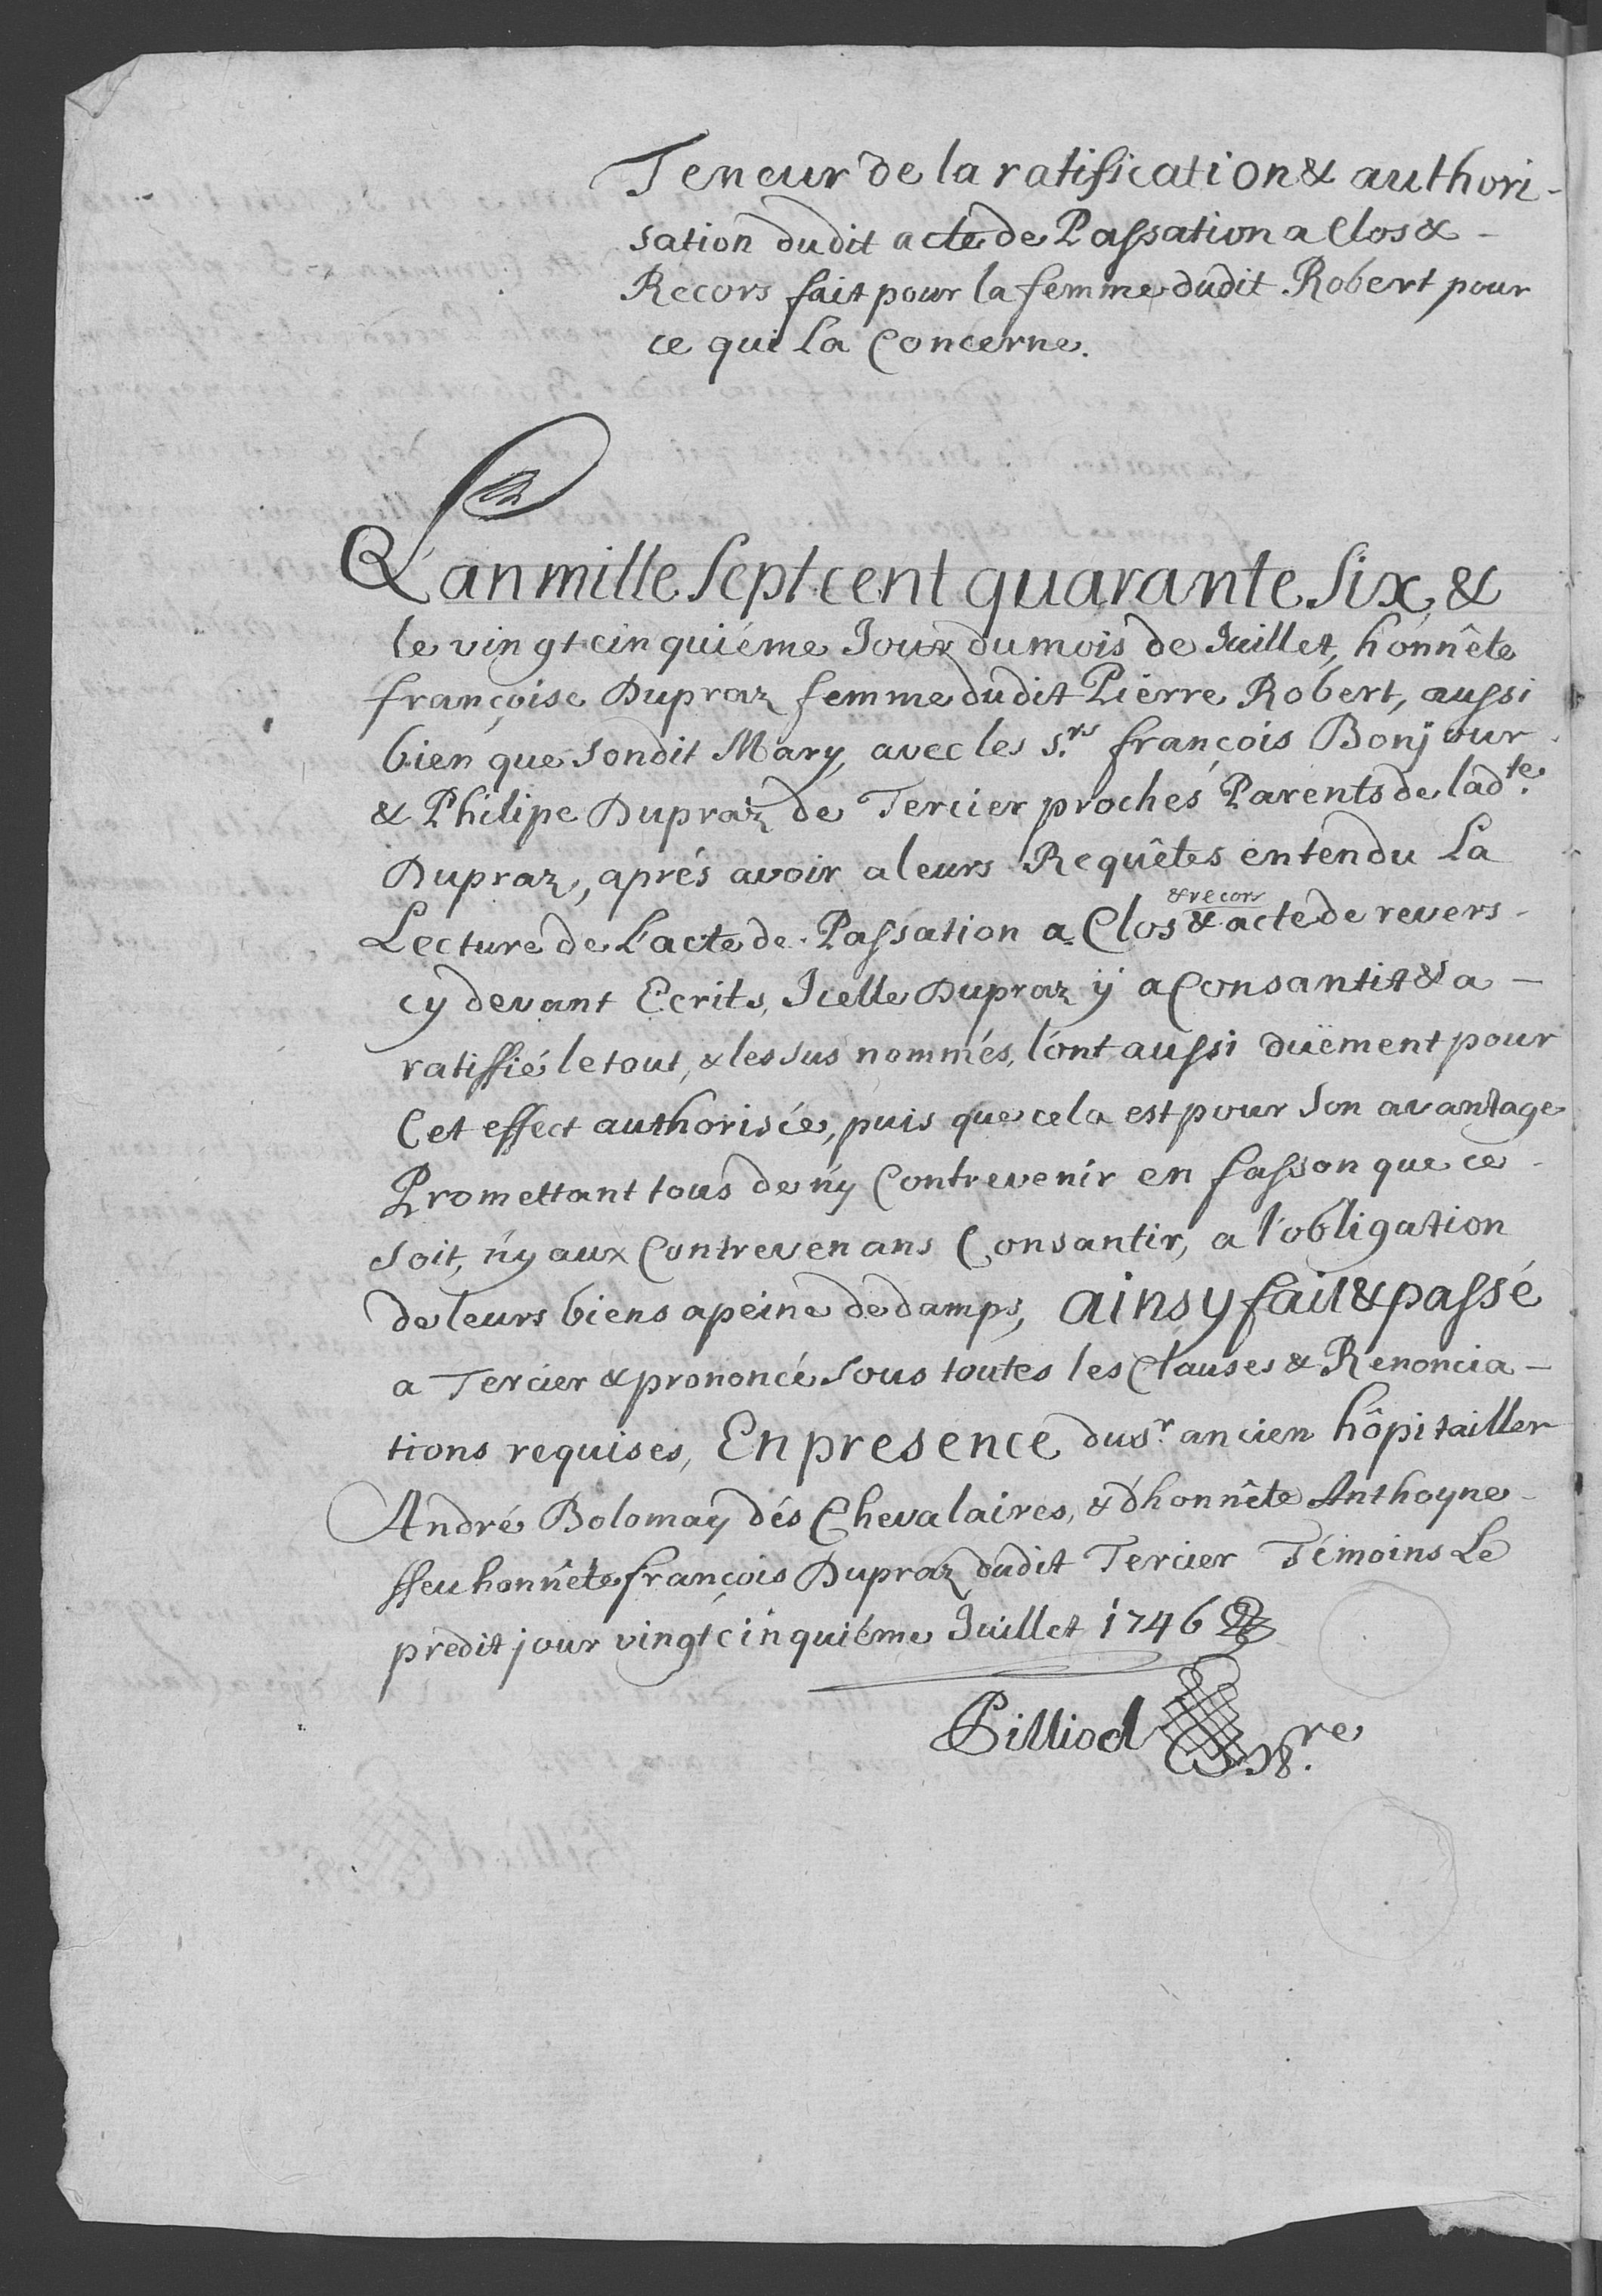 Teneur de la ratification & authori-
sation dudit acte de Passation a Clos & -
Recors fait pour la femme dudit Robert pour
ce qui La Concerne.
L'an mille Sept cent quarante Six, &
le vingt cinquiéme Jour du mois de Juillet, honnête
françoise Dupraz femme dudit Pierre Robert, aussi
bien que Sondit Mary, avec les S.rs françois Bonjour
& Philipe Dupraz de Tercier proches Parents de lad.te
Dupraz, aprés avoir a leurs Requêtes entendu La
& recors
Lecture de L'acte de Passation a Clos & acte de revers -
cy devant Ecrits, Icelle Dupraz ÿ a Consantit & a -
ratiffié le tout, & les sus nommés, l'ont aussi duëment pour
Cet effect authorisée, puis que cela est pour Son avantage
Promettant tous de n'y Contrevenir en fasson que ce -
soit, n'y aux Contrevenans Consantir, a l'obligation
de leurs biens a peine de damps, ainsy fait & passé
a Tercier & prononcé Sous toutes les Clauses & Renoncia -
tions requises, En presence du S.r ancien hôpitailler
André Bolomay dés Chevalaires, & d'honnête Anthoyne -
ffeu honnête françois Dupraz dudit Tercier Témoins Le
predit jour vingt cinquiéme Juillet 1746
Pilliod N.re